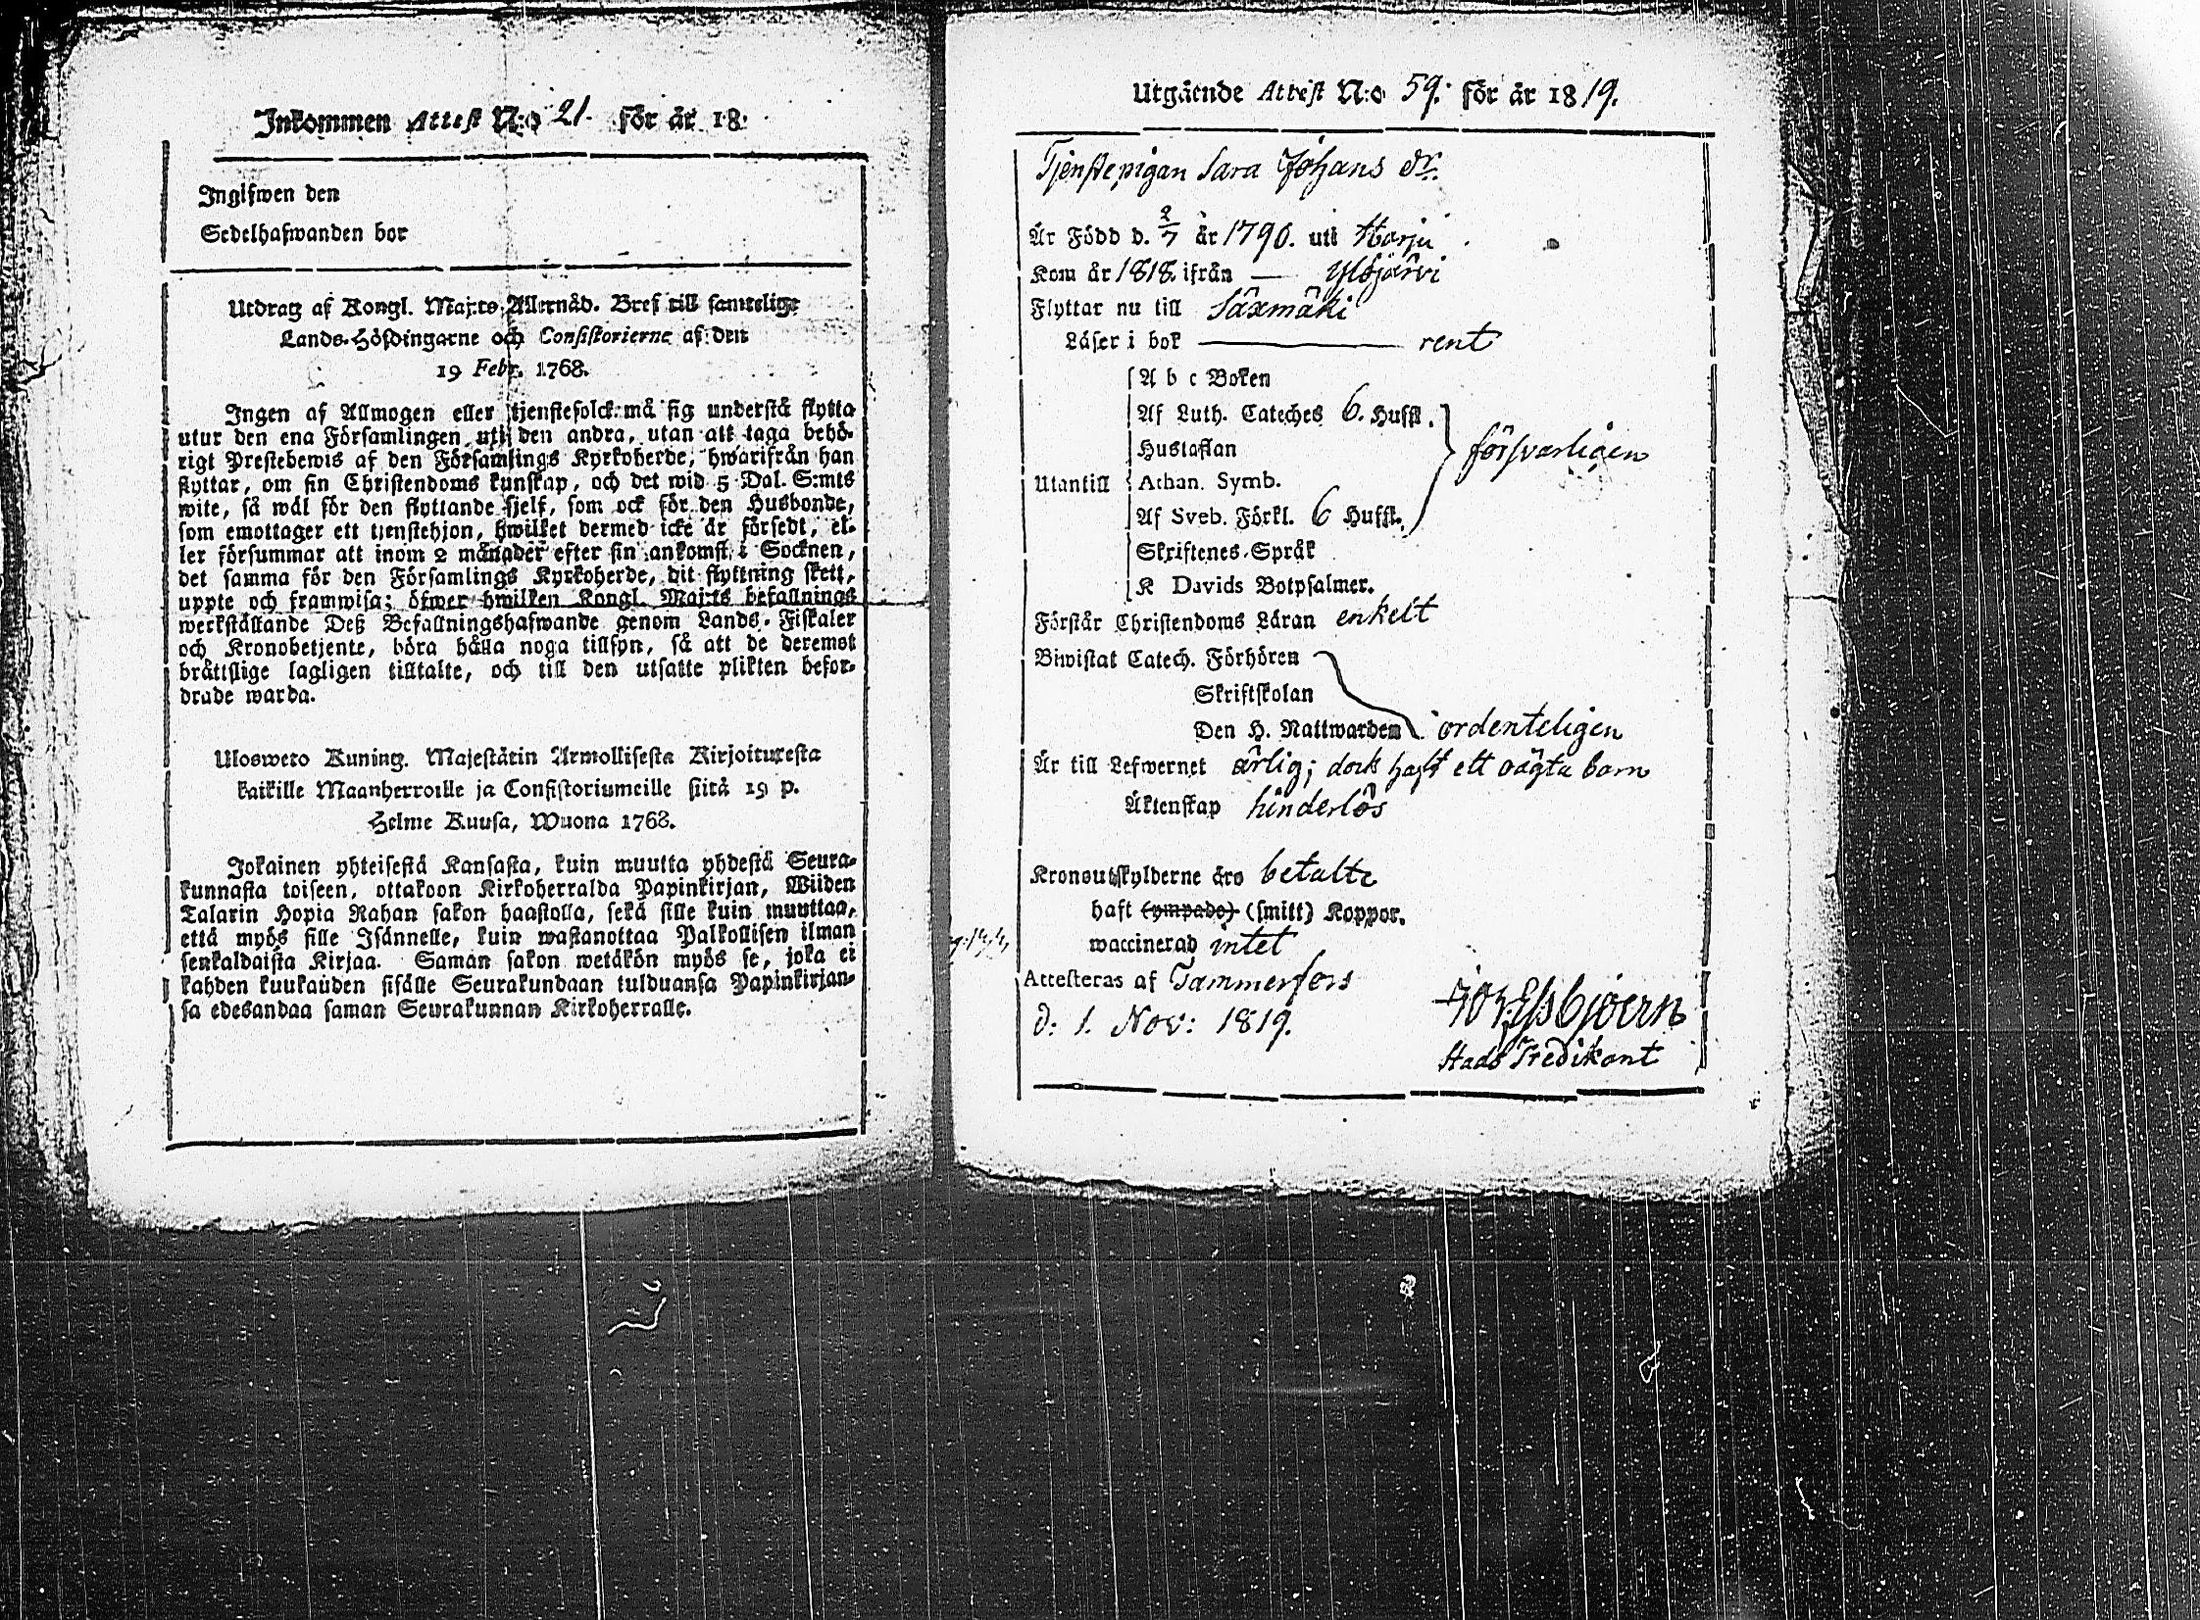 Inkommen Attest N:o 21. för år 18
Ingifwen den
Sedelhafwanden bor
Utdrag af Kongl. Maj:ts Allernåd. Bref till samtelige
Lands-Höfdingarne och Consistorierne af den
19 Febr. 1768.
Ingen af Allmogen eller tjenstefolck må sig understå flytta
utur den ena Församlingen uti den andra, utan att taga behö-
rigt Prestebewis af den Församlings Kyrkoherde, hwarifrån han
flyttar, om sin Christendoms kunskap, och det wid 5 Dal. S:mts
wite, så wäl för den flyttande sjelf, som ock för den Husbonde,
som emottager ett tjenstehjon, hwilket dermed icke är försedt, el-
ler försummar att inom 2 månader efter sin ankomst i Socknen,
det samma för den Församlings Kyrkoherde, dit flyttning skett,
uppte och framwisa; öfwer hwilken Kongl. Maj:ts befallnings
werkställande Deß Befallningshafwande genom Lands-Fiskaler
och Kronobetjente, böra hålla noga tillsyn, så att de deremot
bråttslige lagligen tilltalte, och till den utsatte plikten befor-
drade warda.
Ulosweto Kuning. Majestätin Armollisesta Kirjoituxesta
kaikille Maanherroille ja Consistoriumeille siitä 19 p.
Helme Kuusa, Wuona 1768.
Jokainen yhteisestä Kansasta, kuin muutta yhdestä Seura-
kunnasta toiseen, ottakoon Kirkoherralda Papinkirjan, Wiiden
Talarin Hopia Rahan sakon haastolla, sekä sille kuin muuttaa,
että myös sille Isännelle, kuin wastanottaa Palkollisen ilman
senkaldaista Kirjaa. Saman sakon wetäkön myös se, joka ei
kahden kuukauden sisälle Seurakundaan tulduansa Papinkirjan-
sa edesandaa saman Seurakunnan Kirkoherralle.
Utgående Attest N:o 59. för år 1819.
Tjenstepigan Sara Johans dr.
Är Född d. 2/7 år 1790. uti Harju
Kom år 1818. ifrån — Ylöjärvi
Flyttar nu till Säxmäki
Läser i bok — rent
A b c Boken
Af Luth. Cateches 6. Hufst.
Hustaflan
försvarligen
Utantill Athan. Symb.
Af Sveb. Förkl. 6 Hufst.
Skriftenes Språk
K Davids Botpsalmer.
Förstår Christendoms Läran enkelt
Biwistat Catech. Förhören
Skriftskolan
Den H. Nattwarden ordenteligen
Är till Lefwernet ärlig; dock haft ett oägta barn
Äktenskap hinderlös
Kronoutskylderne äro betalte
haft (ympade) (smitt) Koppor.
waccinerad intet
Attesteras af Tammerfors
d: 1. Nov: 1819.
Joh: Essbjoern
Stads Predikant